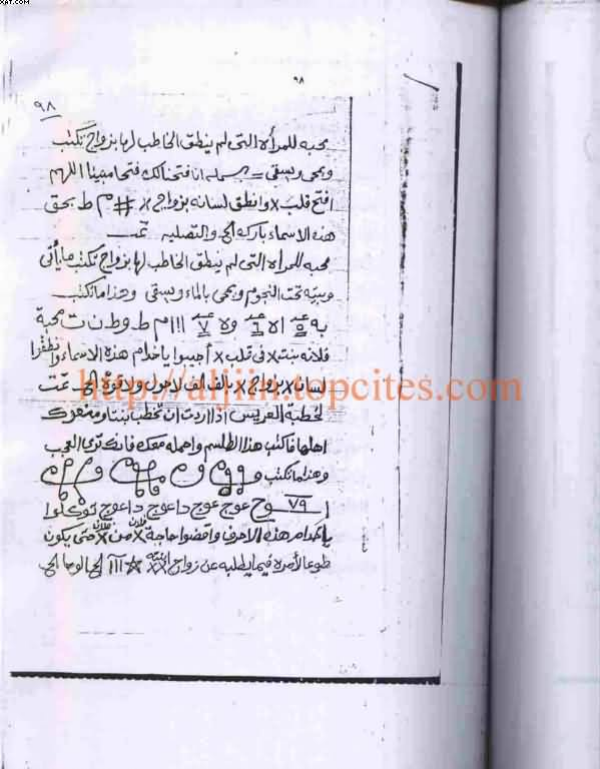 XAT.COM
٩٨
٩٨
محبه للمرأة التى لم ينطق الخاطب لها بزواج تكتب
ويمحى ويسقى = بسمله انا فتحنا لك فتحا مبينا اللهم
افتح قلب x وانطق لسانه بزواج x # م ط بحق
هذه الاسماء بارك الخ والتصليه تمت
محبه للمرأة التى لم ينطق الخاطب لها بزواج تكتب ما يأتى
ويبيته تحت النجوم ويمحى بالماء ويسقى وهذا ما تكتب
١١١ م ط و ط ن ت محبة
فلانه بنت x فى قلب x أجيبوا يا خدام هذه الاسماء وانطقوا
لسان x بزواج x بالف الف لاحول ولا قوة الخ تمت
http://aljjin.topcites.com
لخطبة العريس اذا اردت ان تخطب بنتا ومنعوك
اهلها فاكتب هذا الطلسم واحمله معك فانك ترى العجب
وهذا ما تكتب
٧٩ ح عوج عوج داعوج داعوج توكلوا
يا خدام هذه الاحرف واقضوا حاجة x فلان من x فلان حتى يكون
طوعا لأمره فيما يطلبه عن زواج xx ااا الخ الوحا الخ